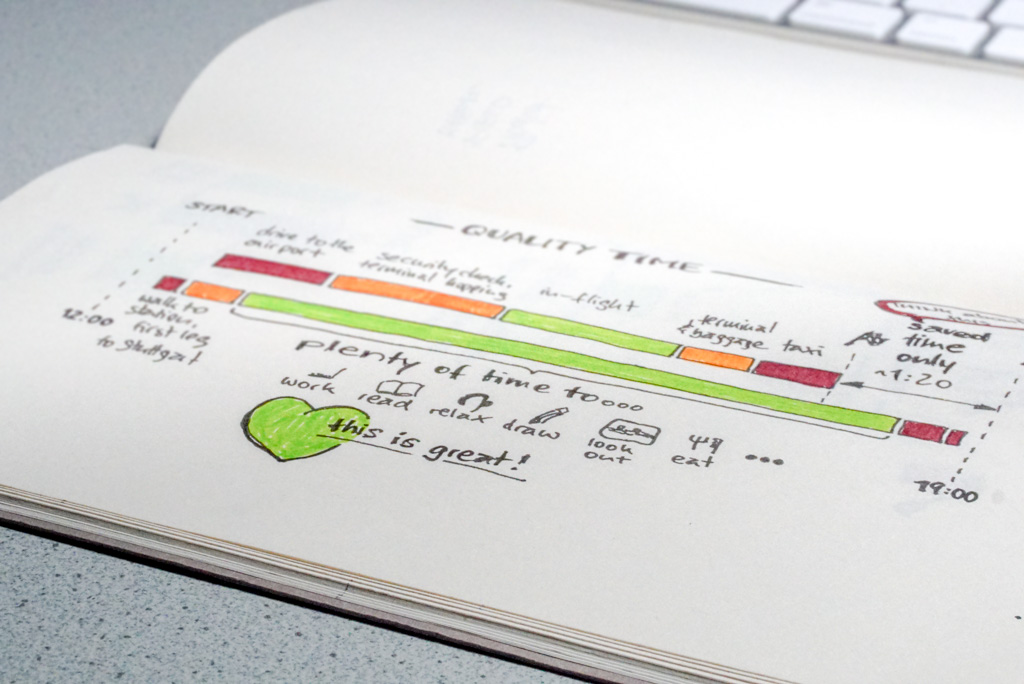 START
QUALITY TIME
drive to the
airport
security check,
terminal hopping
in-flight
terminal
& baggage
taxi
saved
time
only
~1:20
12:00
walk to
station,
first leg
to Stuttgart
plenty of time to ooo
work
read
relax
draw
look
out
eat
...
this is great!
19:00